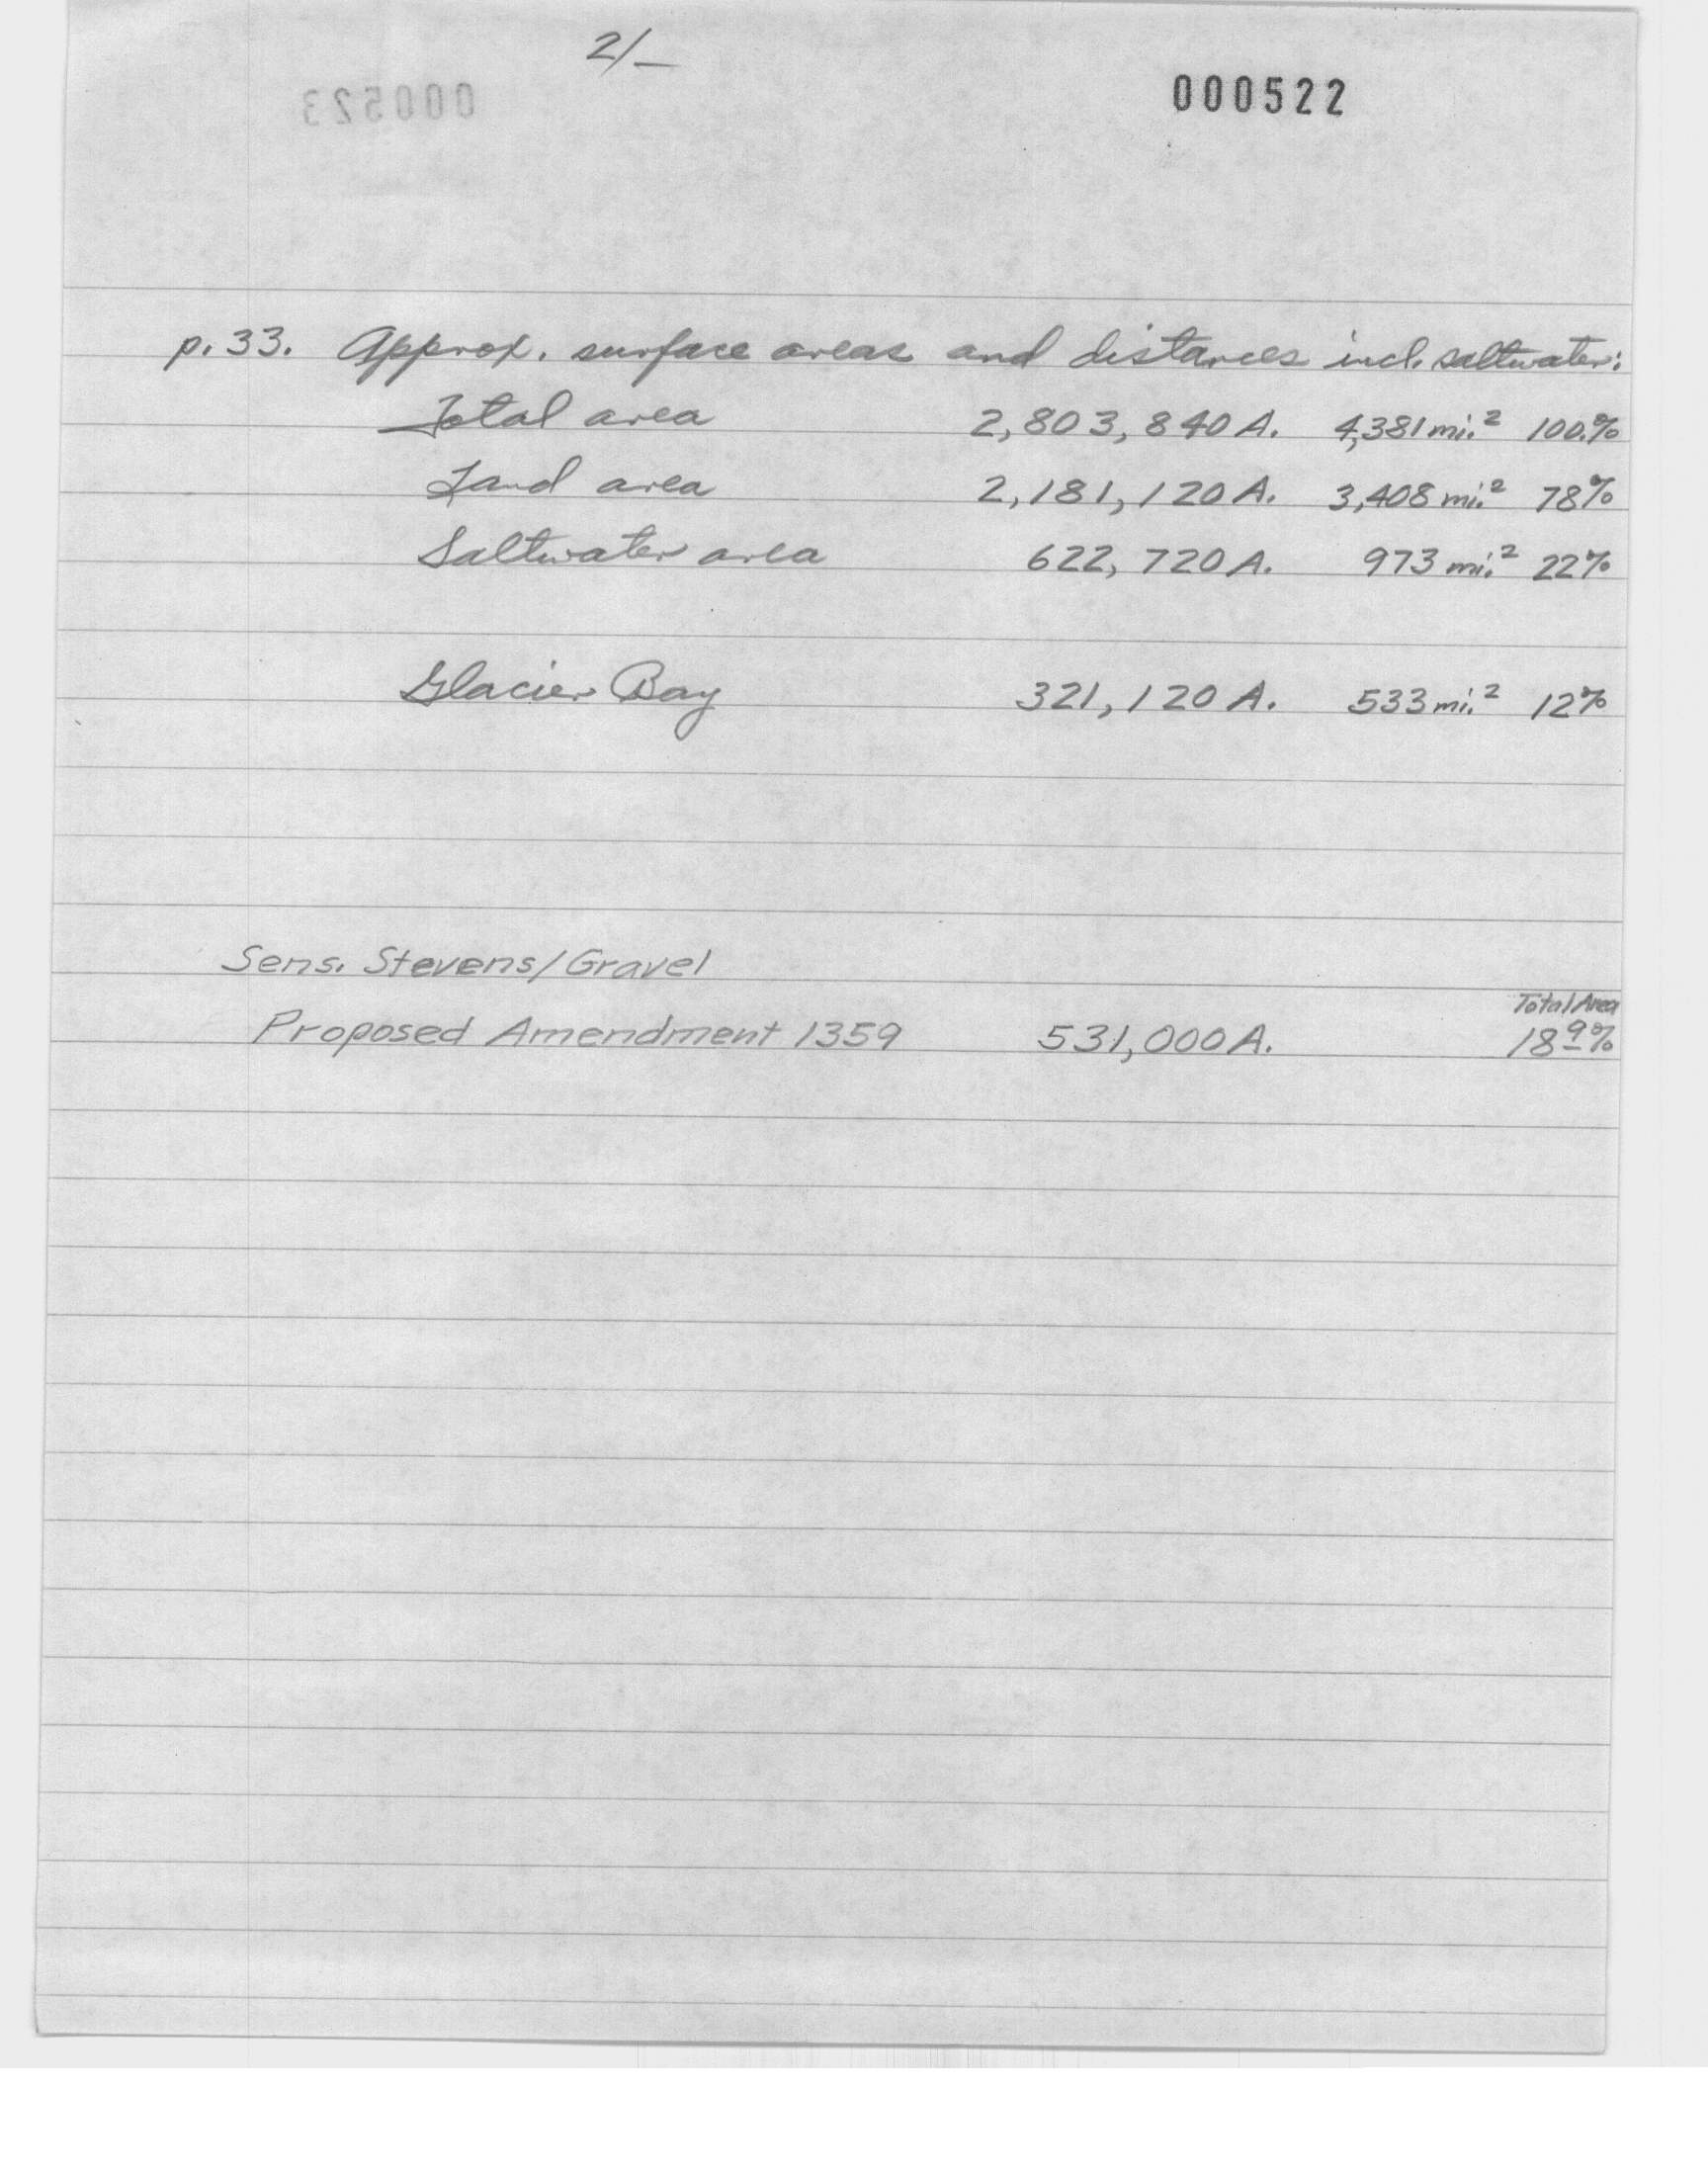 2/—
000523
000522
p. 33. Approx. surface areas and distances incl. saltwater:
Total area 2,803,840 A. 4,381 mi.² 100.%
Land area 2,181,120 A. 3,408 mi.² 78%
Saltwater area 622,720 A. 973 mi.² 22%
Glacier Bay 321,120 A. 533 mi.² 12%
Sens. Stevens/Gravel
Total Area
Proposed Amendment 1359 531,000 A. 18⁹%